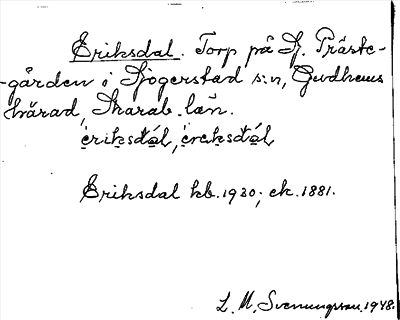 Eriksdal. Torp på Sj. Präste-
-gården i Sjogerstad s:n, Gudhems
härad, Skarab. län.
èriksdál,
Eriksdal kb. 1920; ek. 1881.
L. M. Svenungsson. 1948.